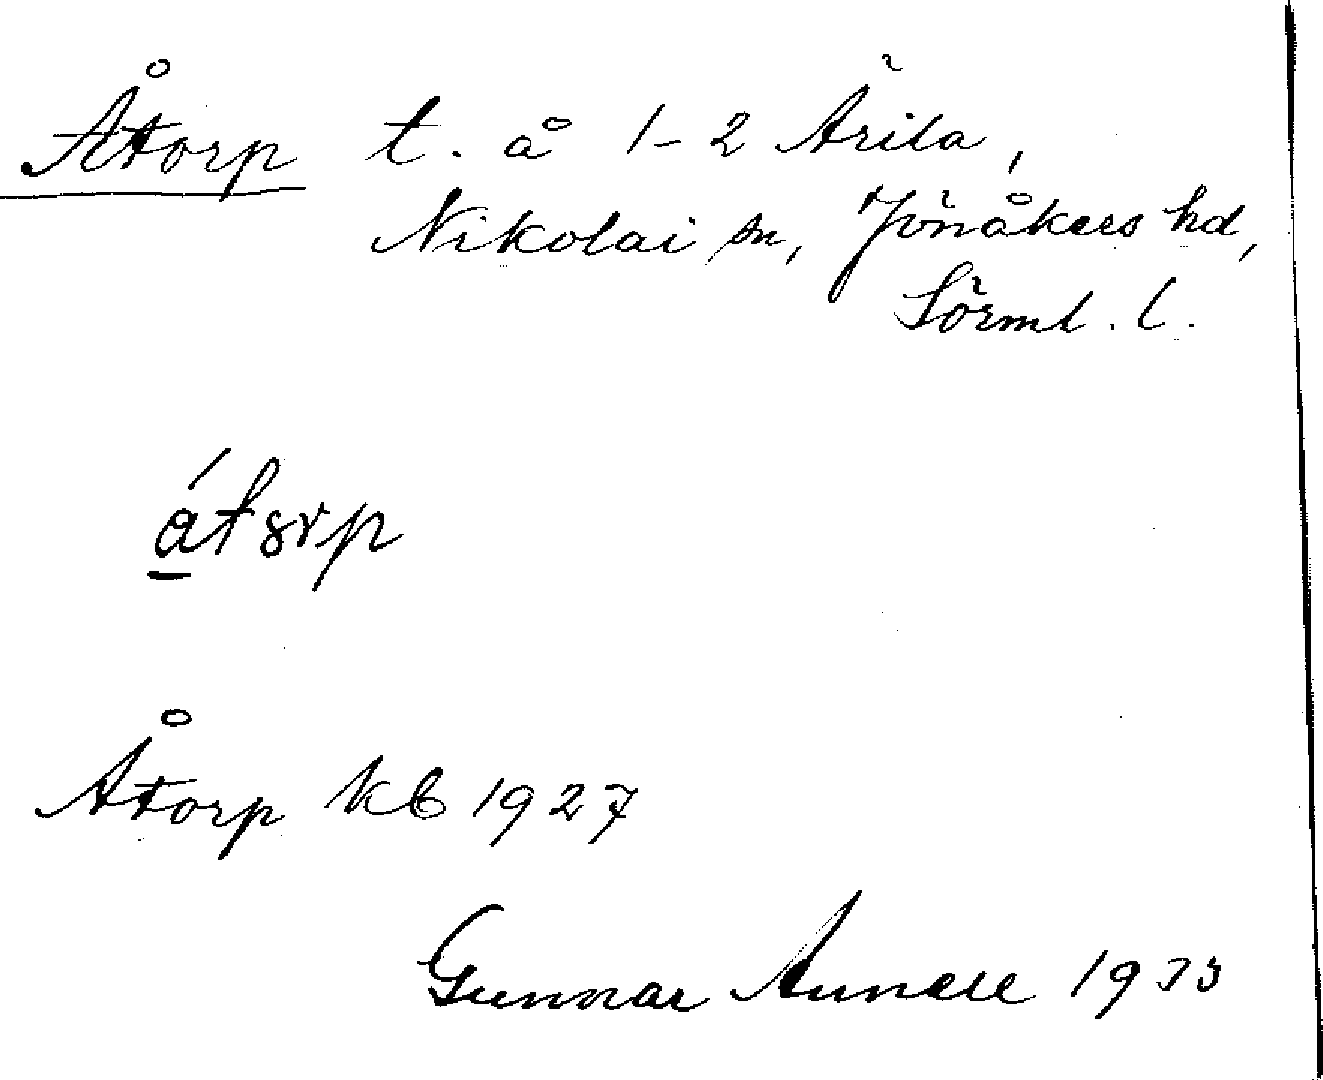 Åtorp t. å 1-2 Ärila,
Nikolai sn, Jönåkers hd,
Sörml. l.
Åtorp kb 1927
Gunnar Aunell 1935